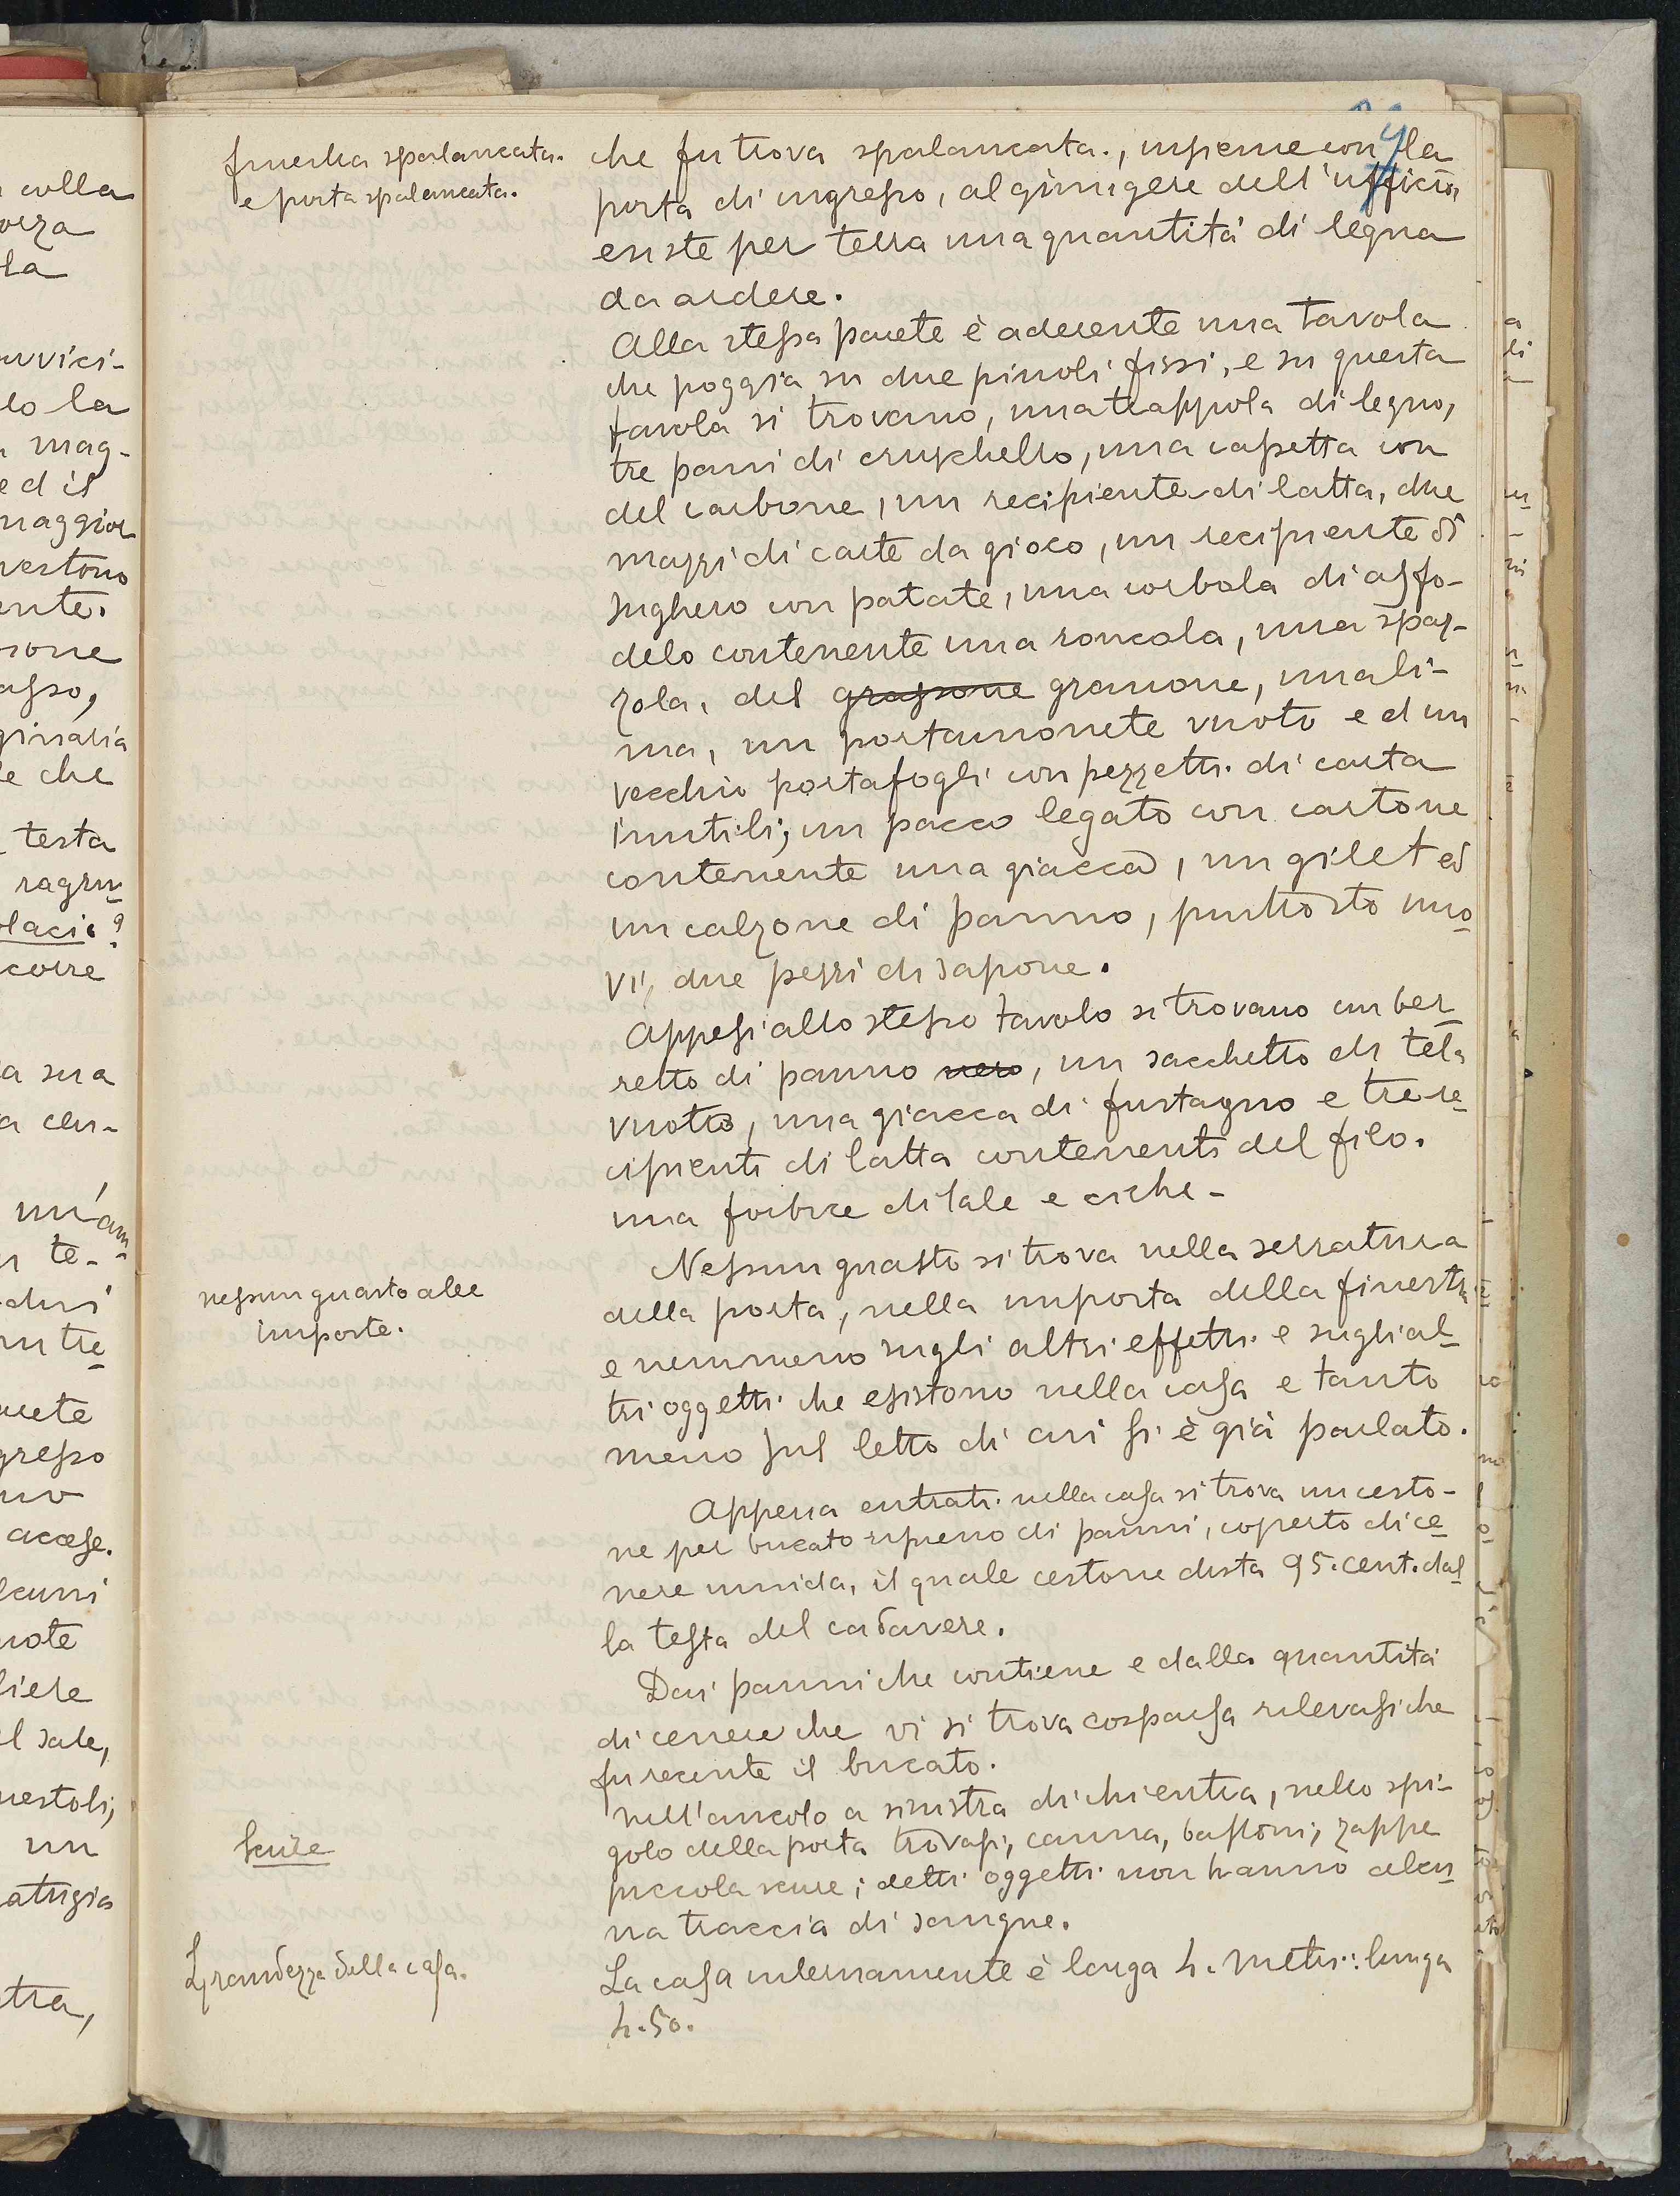 finestra spalancata.
e porta spalancata.
nessun guasto alle
importe.
Scure
Grandezza della casa.
che fu trova spalancata., insieme con la
porta di ingresso, al giungere dell'ufficio,
esiste per terra una quantità di legna
da ardere.
Alla stessa parete è aderente una tavola
che poggia su due piuoli fissi, e su questa
tavola si trovano, una trappola di legno,
tre pani di cruschello, una cassetta con
del carbone, un recipiente di latta, due
mazzi di carte da gioco, un recipiente di
sughero con patate, una corbola di asfo-
delo contenente una roncola, una spaz-
zola, del grassone granone, una li-
ma, un portamonete vuoto ed un
vecchio portafogli con pezzetti di carta
inutili; un pacco legato con cartone
contenente una giacca, un gilet ed
un calzone di panno, piuttosto nuo-
vi, due pezzi di sapone.
Appesi allo stesso tavolo si trovano un ber-
retto di panno nero, un sacchetto di tela
vuoto, una giacca di fustagno e tre re-
cipienti di latta contenenti del filo.
una forbice di tale e
Nessun guasto si trova nella serratura
della porta, nella importa della finestra
e nemmeno sugli altri effetti e sugli al-
tri oggetti che esistono nella casa e tanto
meno sul letto di cui si è già parlato.
Appena entrati nella casa si trova un cesto-
ne per bucato ripieno di panni, coperto di ce-
nere umida, il quale cestone dista 95. cent. dal-
la testa del cadavere.
Dai panni che contiene e dalla quantità
di cenere che vi si trova cosparsa rilevasi che
fu recente il bucato.
nell'angolo a sinistra di chi entra, nello spi-
golo della porta trovasi, canna, bastoni, zappe
piccola scure; detti oggetti non hanno alcu-
na traccia di sangue.
La casa internamente è larga 4. metri: lunga
4.50.